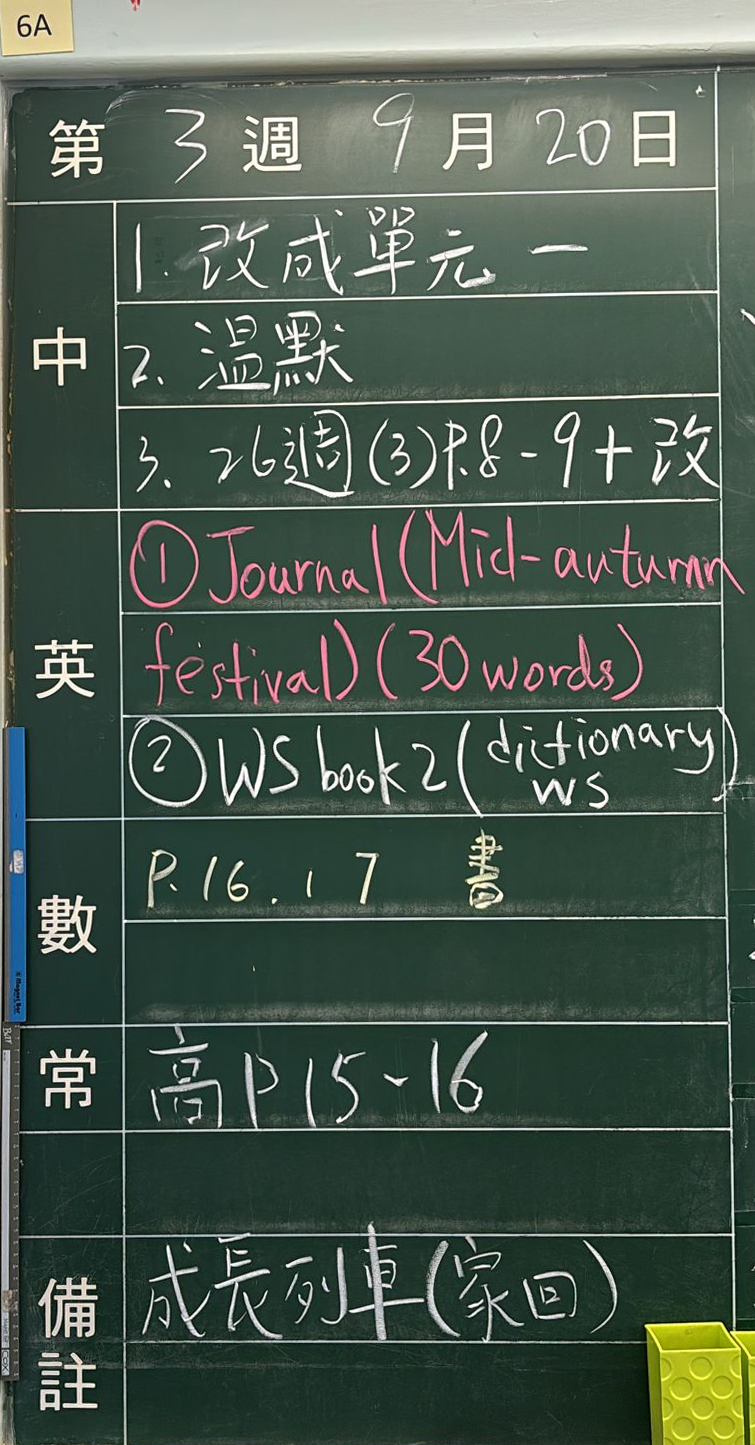 6A
第 3 週 9 月 20 日
中
1. 改成單元一
2. 溫默
3. 26週(3)P.8-9+改
英
① Journal (Mid-autumn
festival) (30 words)
② WS book 2 (dictionary
WS)
數
P.16.17 書
常
高P15-16
備註
成長列車(家回)